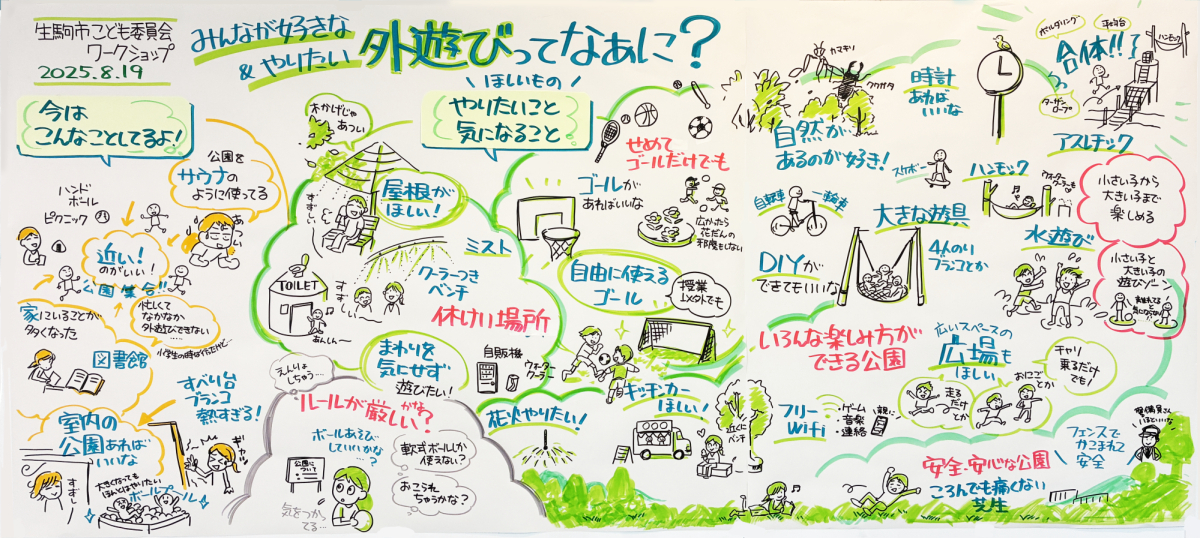 生駒市こども委員会
ワークショップ
2025.8.19
みんなが好きな
&やりたい
外遊びってなぁに?
今は
こんなことしてるよ!
公園を
サウナの
ように使ってる
ハンド
ボール
ピクニック
近い!
のがいい!
公園集合!!
家にいることが
多くなった
忙しくて
なかなか
外遊びできない
図書館
すべり台
ブランコ
熱すぎる!
室内の
公園あれば
いいな
すずしい
大きくなっても
ほんとはやりたい
ボールプール
木かげじゃ
あつい
屋根が
ほしい!
すずしい
ミスト
クーラーつき
ベンチ
すずしー
TOILET
あんしーん
休けい場所
まわりを
気にせず
遊びたい!
自販機
ウォーター
クーラー
えんりょ
しちゃう…
ルールが厳しい?
ボールあそび
していいかな
…?
軟式ボールしか
使えない?
おこられ
ちゃうかな?
公園に
ついて
気をつかっ
てる…
ほしいもの
やりたいこと
気になること
せめて
ゴールだけでも
ゴールが
あればいいな
広かったら
花だんの
邪魔もしない
自由に使える
ゴール
授業
以外でも
花火やりたい!
キッチンカー
ほしい!
近くに
ベンチ
カマキリ
クワガタ
自然が
あるのが好き!
時計
あれば
いいな
ボルダリング
平均台
ハンモック
合体!!
ターザン
ロープ
アスレチック
スケボー
ハンモック
ウォーター
クーラーも
小さい子から
大きい子まで
楽しめる
自転車
一輪車
大きな遊具
4人のり
ブランコとか
水遊び
DIYが
できてもいいな
小さい子と
大きい子の
遊びゾーン
いろんな楽しみ方が
できる公園
広いスペースの
広場も
ほしい
チャリ
乗るだけ
でも!
走る
だけ
とか
おにご
とか
フリー
Wifi
・ゲーム
・音楽
・連絡
親に
警備員さん
フェンスで
かこまれて
安全
安全・安心な公園
ころんでも痛くない
芝生